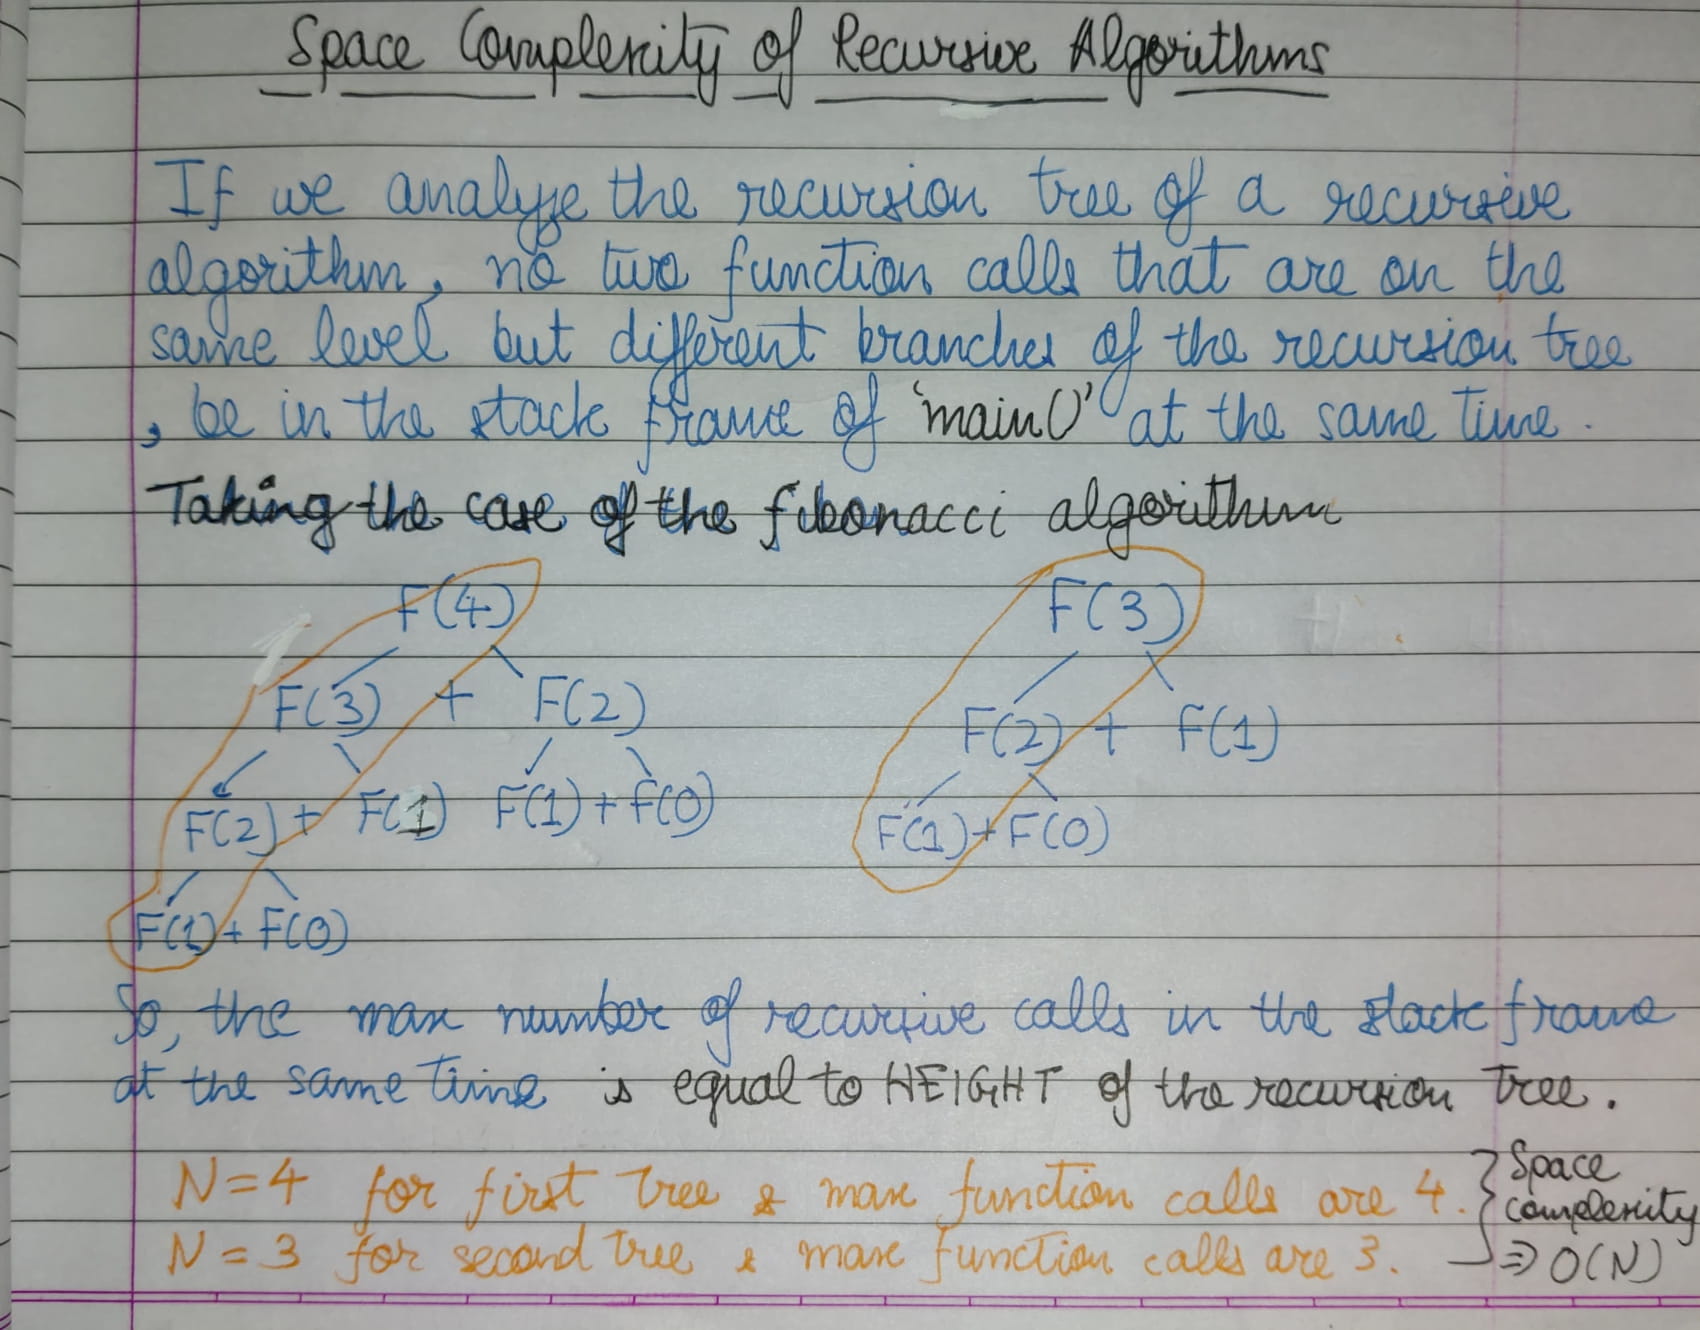 Space Complexity of Recursive Algorithms
If we analyse the recursion tree of a recursive
algorithm, no two function calls that are on the
same level but different branches of the recursion tree
, be in the stack frame of 'main()' at the same time.
Taking the case of the fibonacci algorithm
F(4)
F(3) + F(2)
F(2) + F(1) F(1) + F(0)
F(1) + F(0)
F(3)
F(2) + F(1)
F(1) + F(0)
So, the max number of recursive calls in the stack frame
at the same time is equal to HEIGHT of the recursion tree.
N=4 for first tree & max function calls are 4.
N=3 for second tree & max function calls are 3.
Space
complexity
⇒ O(N)